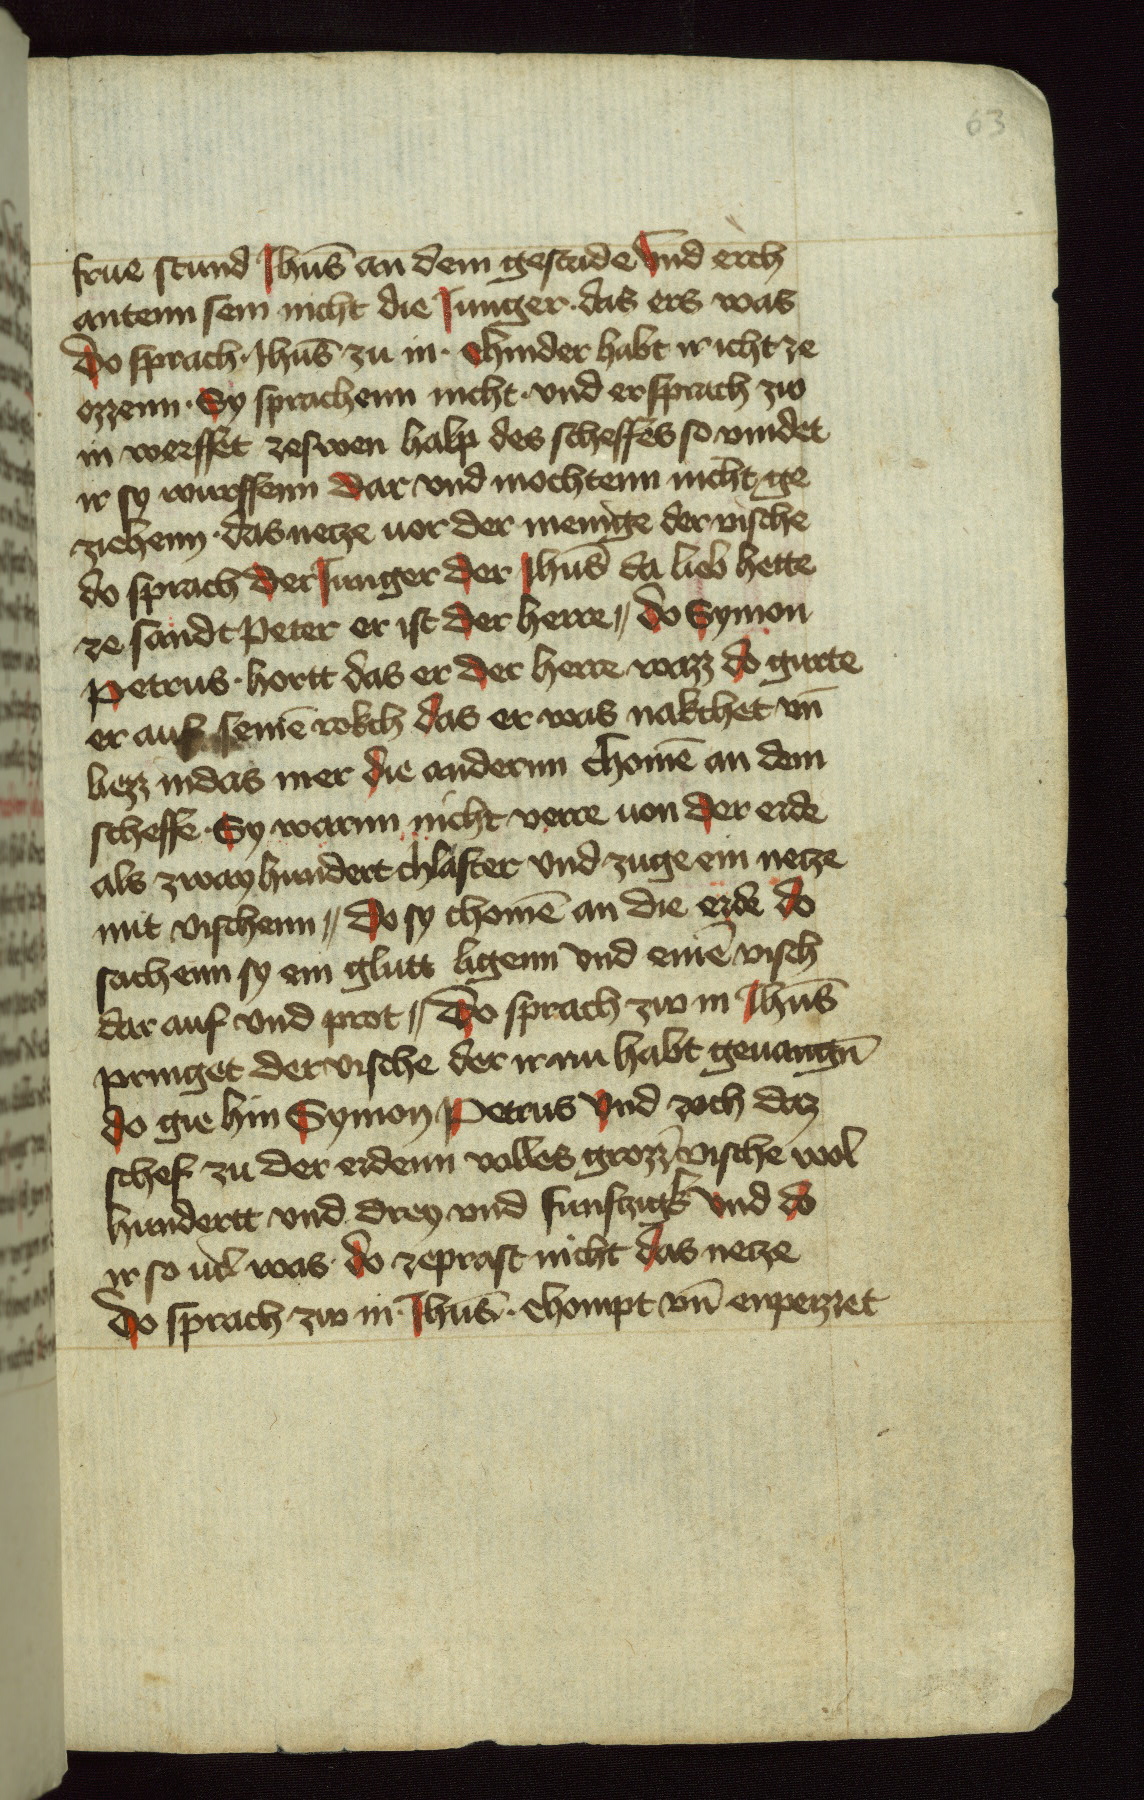 63
frue stund Jhus̄ an dem gestade Vnd erch
antenn sein nicht die Junger · das ers was
Do sprach · Jhus̄ zu in · Chinder habt ir icht ze
ezzenn · Sy sprachenn nicht · vnd er sprach zw
in werffet zeswen halp des scheffes so vindet
ir sy wurffenn Dar vnd mochtenn nicht ge
ziehenn · das netze uor der menige der vische
do sprach Der Junger Der Jhus̄ da lieb hette
ze sandt Peter er ist Der herre // Do Symon
Petrus · hortt das er Der herre wazz do gurte
er auf seinē rokch das er was nakchet vn̄
liezz in das mer die andernn chomē an dem
scheffe · Sy warnn nicht verre uon Der erde
als zway hundert chlafter vnd zuge ein netze
mit vischenn // Do sy chomē an die erde do
sachenn sy ein glutt ligenn vnd einē visch
dar auf vnd prot // Do sprach zw in Jhus̄
pringet der vische der ir nu habt geuangn̄
do gie hin Symon Petrus Vnd zoch daz
schef zu der erdenn volles grozz̾ vische wol
hundertt vnd drey vnd funfzigk Vnd do
ir so uil was do zeprast nicht das netze
Do sprach zw in · Jhus̄ · chompt vn̄ enpeizzet